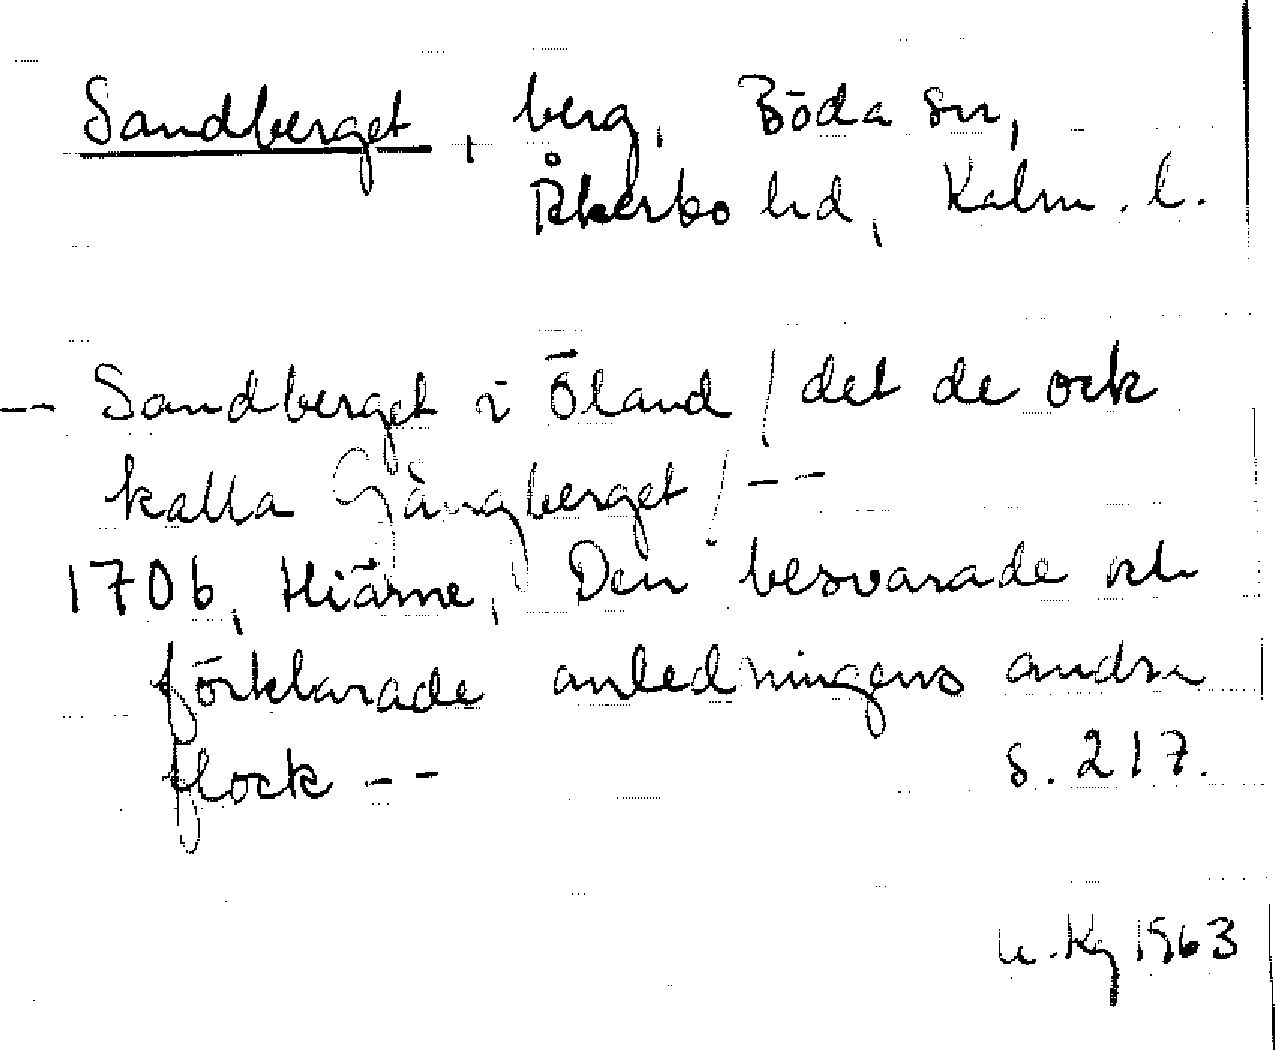 Sandberget, berg, Böda sn,
Åkerbo hd, Kalm. l.
-- Sandberget i Öland / det de ock
kalla Gångberget / --
1706, Hiärne, Den besvarade och
förklarade anledningens andra
flock -- s. 217.
Kg 1963